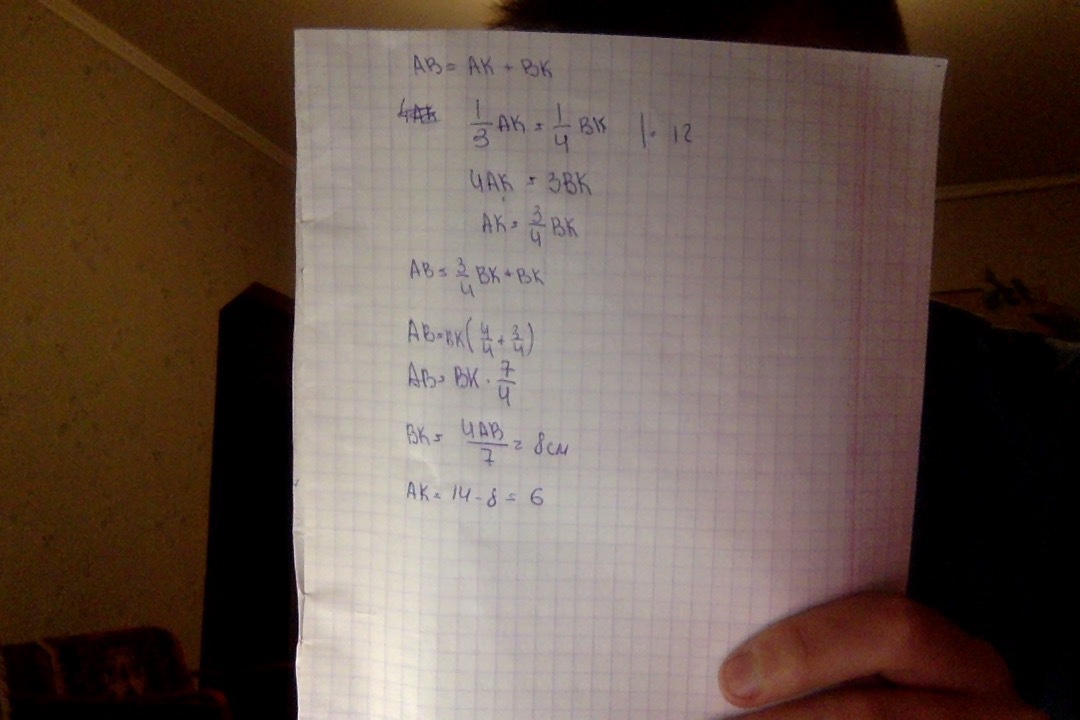 AB = AK + BK
1/3 AK = 1/4 BK | · 12
4AK = 3BK
AK = 3/4 BK
AB = 3/4 BK + BK
AB = BK(4/4 + 3/4)
AB = BK · 7/4
BK = 4AB/7 = 8см
AK = 14 - 8 = 6